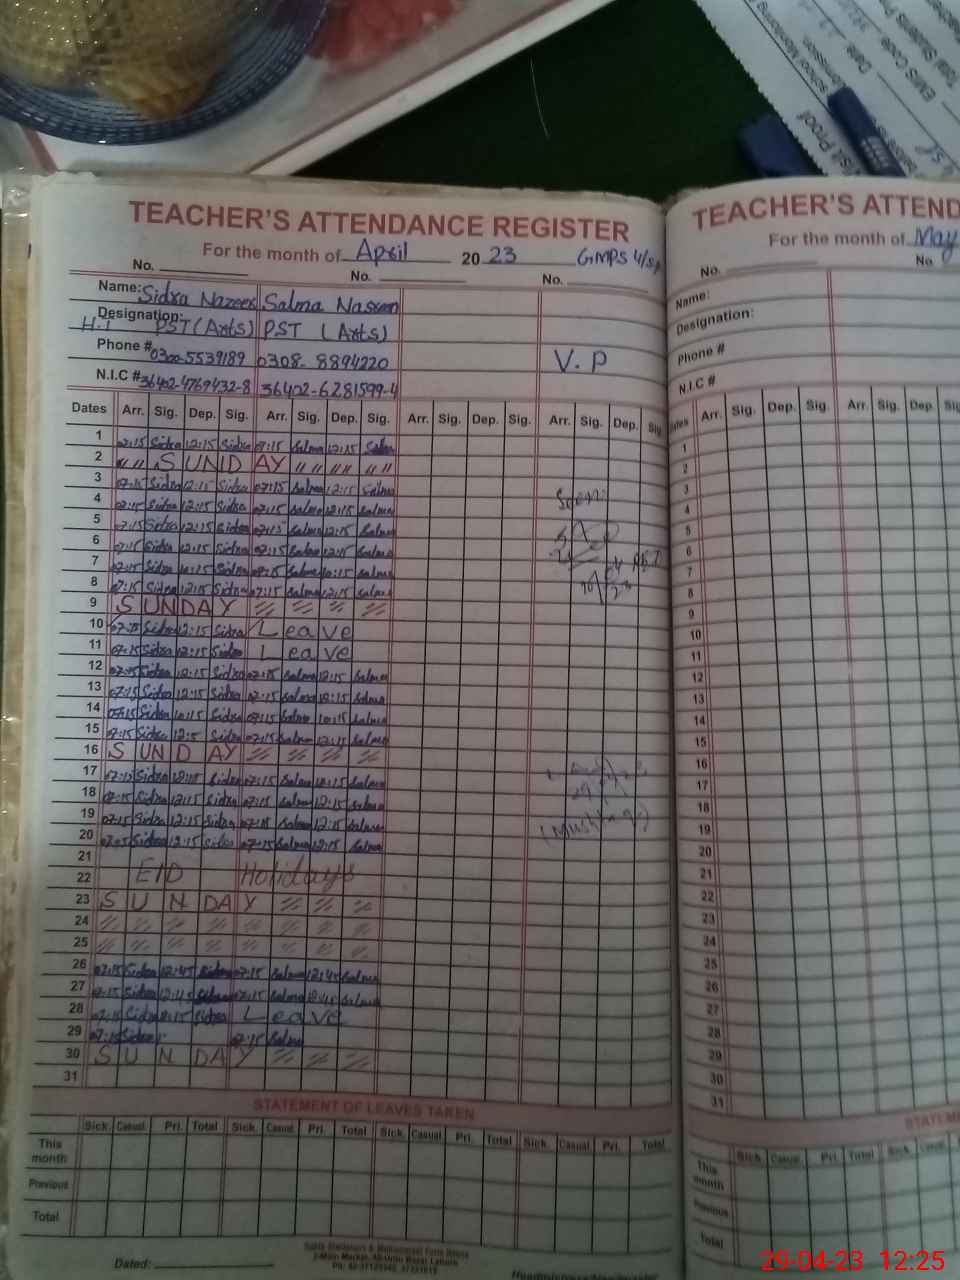 TEACHER'S ATTENDANCE REGISTER
For the month of April 2023 GMPS
No. No. No.
Name: Sidra Nazeer Salma Naseem
Designation: H.T PST (Arts) PST (Arts)
Phone # 0300-5539189 0308-8894220 V.P
N.I.C # 36402-4769432-8 36402-6281599-4
Dates Arr. Sig. Dep. Sig. Arr. Sig. Dep. Sig. Arr. Sig. Dep. Sig. Arr. Sig. Dep. Sig.
1 07:15 Sidra 12:15 Sidra 07:15 Salma 12:15 Salma
2 SUNDAY
3 07:15 Sidra 12:15 Sidra 07:15 Salma 12:15 Salma
4 07:15 Sidra 12:15 Sidra 07:15 Salma 12:15 Salma
5 07:15 Sidra 12:15 Sidra 07:15 Salma 12:15 Salma
6 07:15 Sidra 12:15 Sidra 07:15 Salma 12:15 Salma
7 07:15 Sidra 10:15 Sidra 07:15 Salma 10:15 Salma
8 07:15 Sidra 12:15 Sidra 07:15 Salma 12:15 Salma
9 SUNDAY
10 07:15 Sidra 12:15 Sidra Leave
11 07:15 Sidra 12:15 Sidra Leave
12 07:15 Sidra 12:15 Sidra 07:15 Salma 12:15 Salma
13 07:15 Sidra 12:15 Sidra 07:15 Salma 12:15 Salma
14 07:15 Sidra 10:15 Sidra 07:15 Salma 10:15 Salma
15 07:15 Sidra Sidra 07:15 Salma 12:15 Salma
16 SUNDAY
17 07:15 Sidra 12:15 Sidra 07:15 Salma 12:15 Salma
18 07:15 Sidra 12:15 Sidra 07:15 Salma 12:15 Salma
19 07:15 Sidra 12:15 Sidra 07:15 Salma 12:15 Salma
20 Sidra 12:15 Sidra 07:15 Salma 12:15 Salma
21
22 EID Holidays
23 SUNDAY
24
25
26 07:15 Sidra 12:45 Sidra 07:15 Salma 12:45 Salma
27 07:15 Sidra 12:45 Sidra 07:15 Salma 12:45 Salma
28 07:15 Sidra Sidra Leave
29 07:15 Sidra 07:15 Salma
30 SUNDAY
31
Seen
(Mushtaq)
STATEMENT OF LEAVES TAKEN
Sick. Casual. Pri. Total Sick. Casual. Pri. Total Sick. Casual. Pri. Total Sick. Casual Pri. Total
This month
Previous
Total
Dated:
TEACHER'S ATTEND
For the month of May
No. No.
Name:
Designation:
Phone #
N.I.C #
Dates Arr. Sig. Dep. Sig. Arr. Sig. Dep.
1
2
3
4
5
6
7
8
9
10
11
12
13
14
15
16
17
18
19
20
21
22
23
24
25
26
27
28
29
30
31
STATEM
Sick. Casual. Pri. Total Sick.
This month
Previous
Total
EMIS Code
Date
29-04-23 12:25